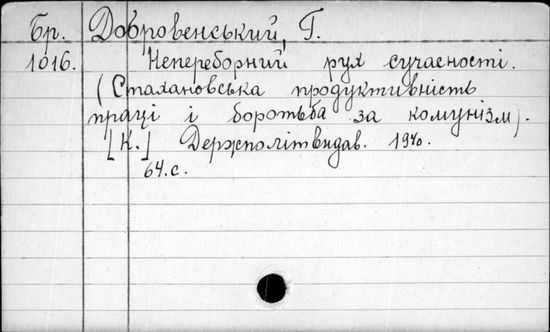 Бр. Добровенський, Г.
1016. Непереборний рух сучасності.
(Стахановська продуктивність
праці і боротьба за комунізм).
[К.] Держполітвидав. 1940.
64 с.